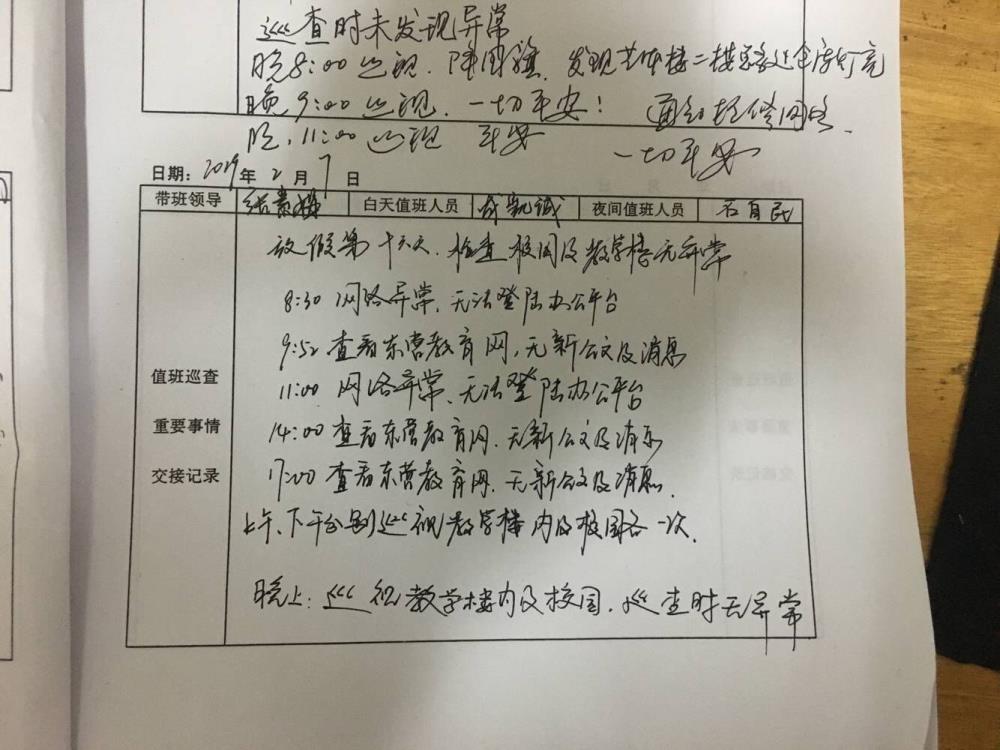 巡查时未发现异常
晚8:00巡视.降国旗.发现艺体楼二楼 仓库灯亮
晚9:00巡视.一切平安! 通知
晚.11:00巡视 平安 一切平安
日期:2019年2月7日
带班领导 白天值班人员 成凯诚 夜间值班人员 石自民
放假第十六天.检查校园及教学楼无异常
8:30 网络异常.无法登陆办公平台
9:52 查看东营教育网.无新公文及消息
值班巡查 11:00 网络异常.无法登陆办公平台
重要事情 14:00 查看东营教育网.无新公文及消息
交接记录 17:00 查看东营教育网.无新公文及消息.
上午、下午分别巡视教学楼内及校园各一次.
晚上:巡视教学楼内及校园.巡查时无异常